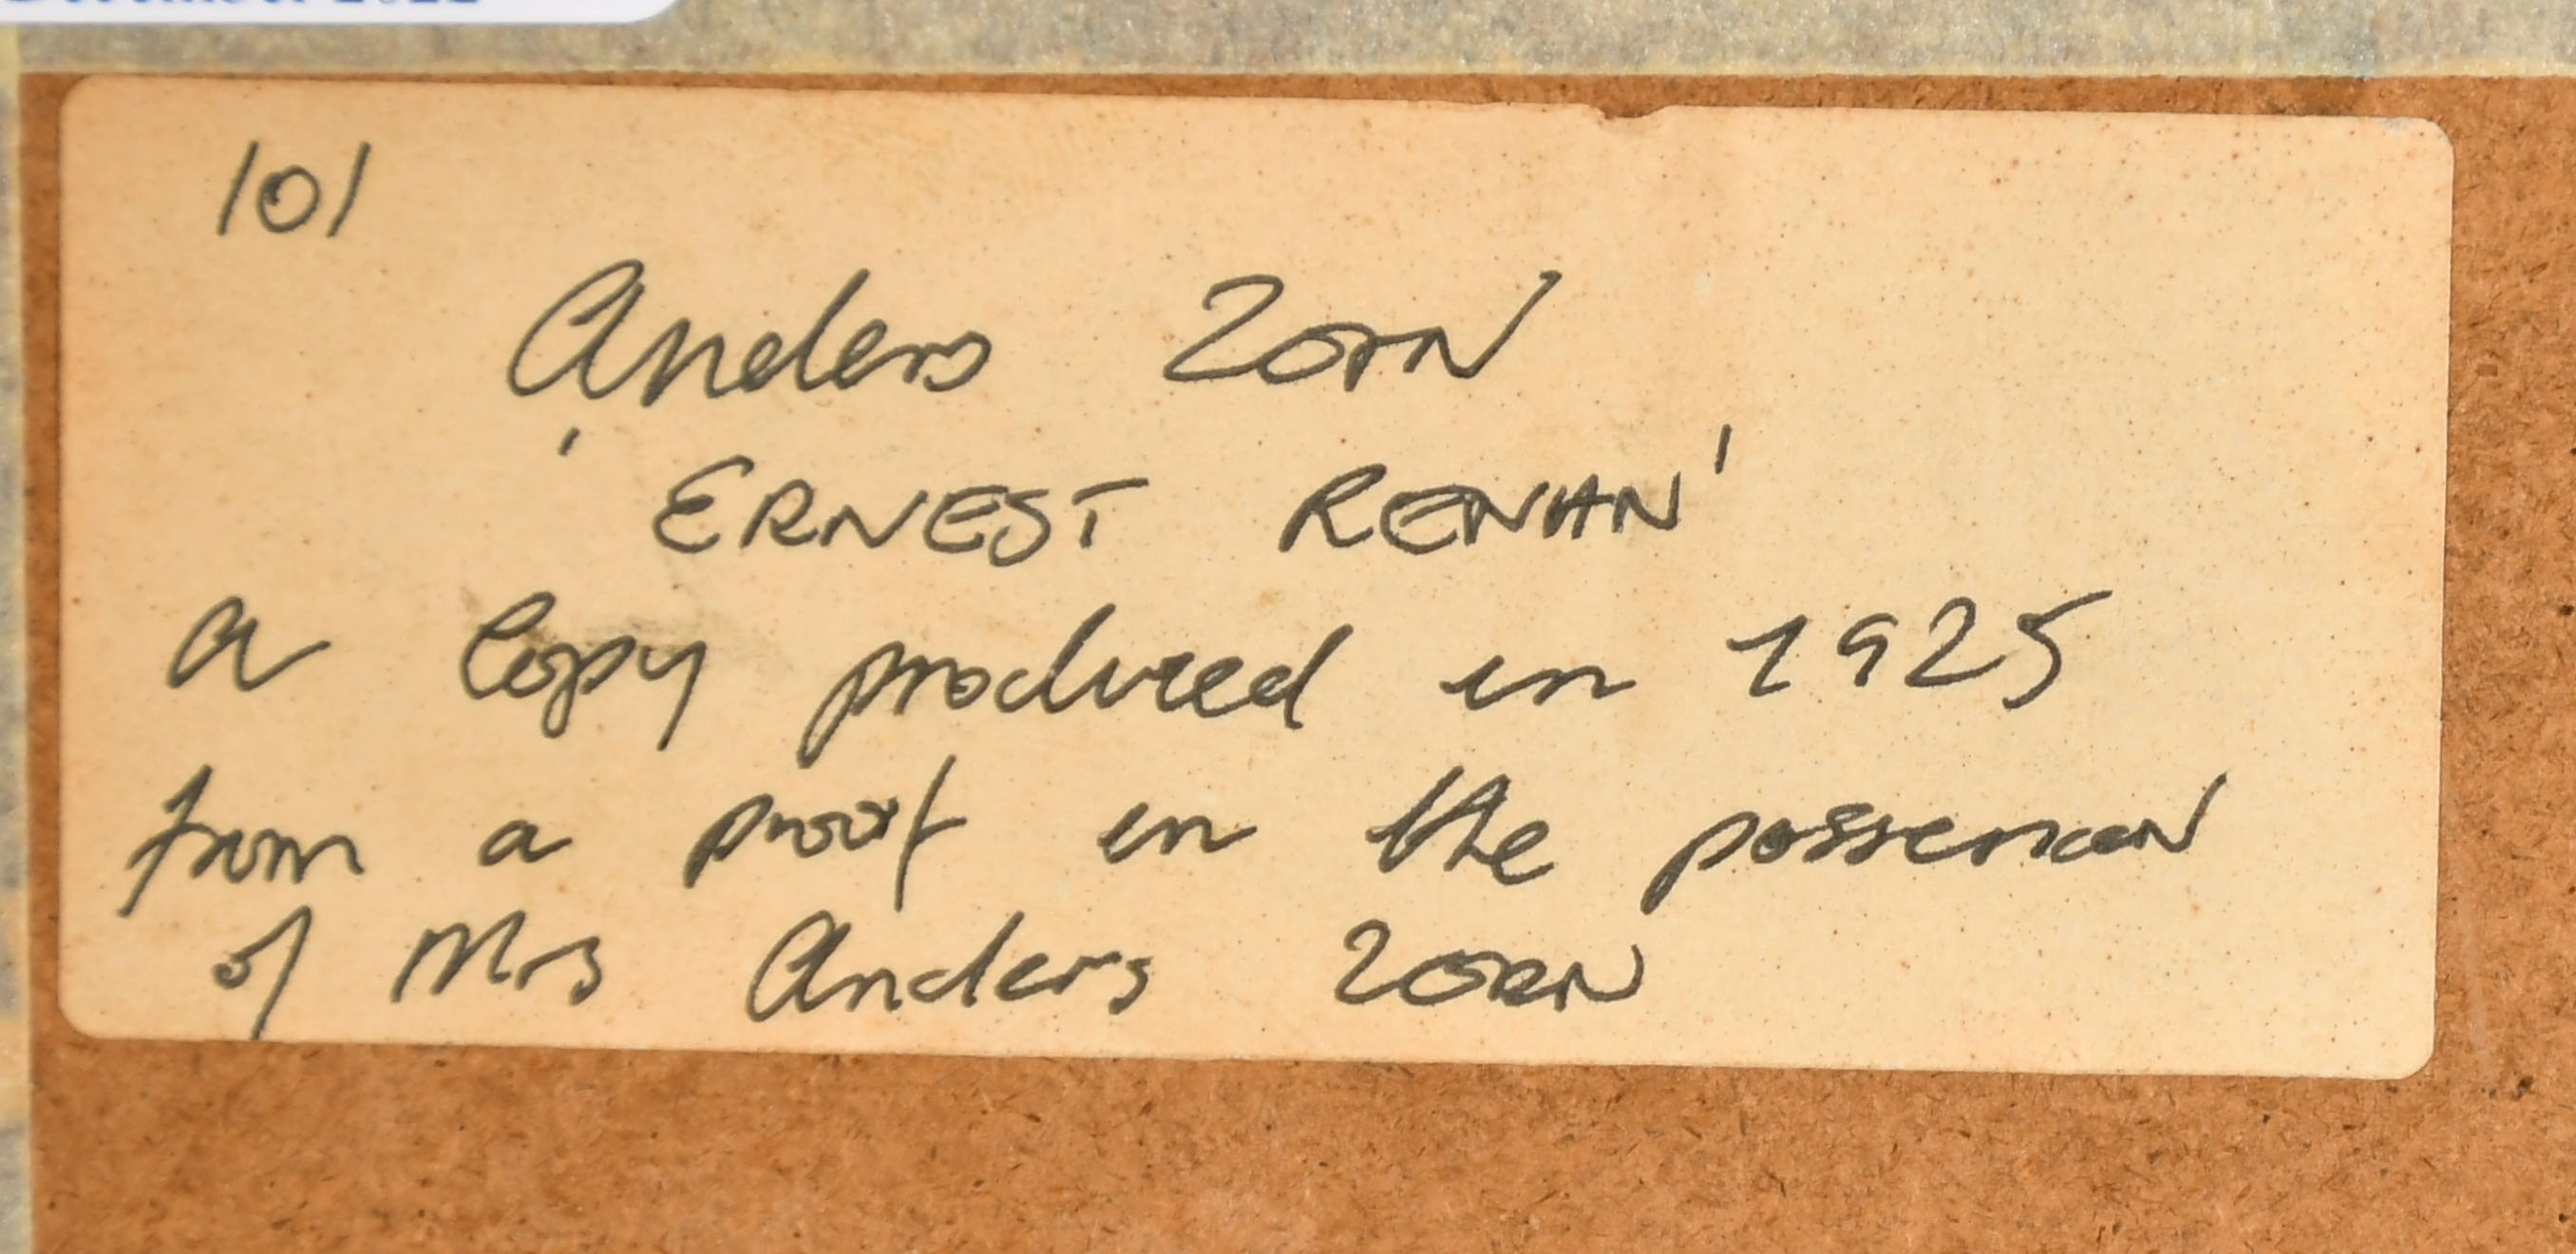 101
Anders Zorn
'ERNEST RENAN'
a Copy produced in 1925
from a proof in the possession
of Mrs Anders ZORN